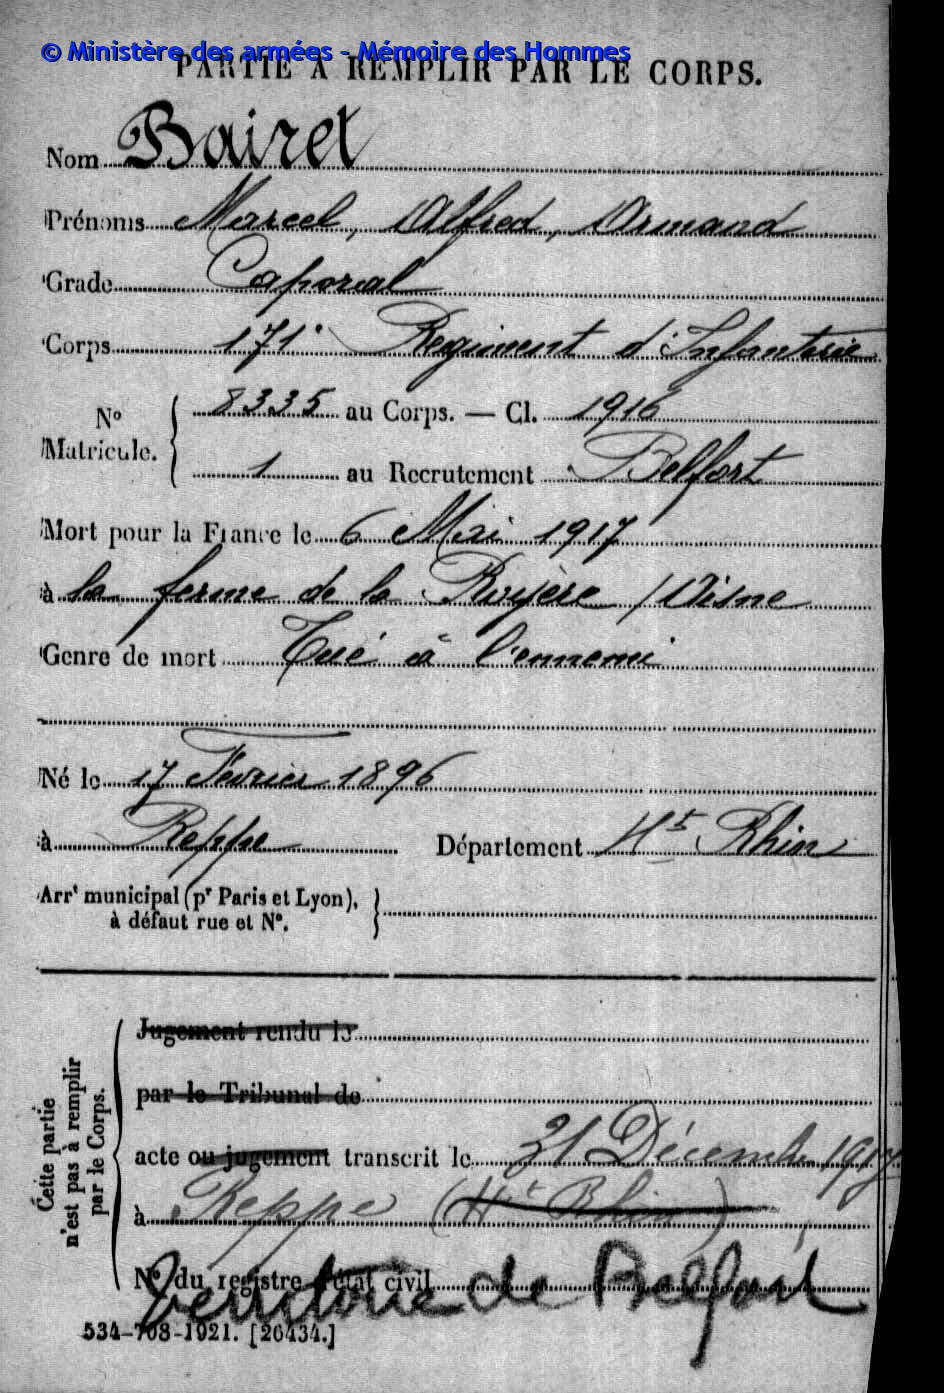 © Ministère des armées - Mémoire des Hommes
PARTIE À REMPLIR PAR LE CORPS.
Nom Bairet
Prénoms Marcel, Alfred, Armand
Grade Caporal
Corps 171e Régiment d'Infanterie
No Matricule. 8335 au Corps. — Cl. 1916
1 au Recrutement Belfort
Mort pour la France le 6 Mai 1917
à la ferme de la Royère /Aisne
Genre de mort Tué à l'ennemi
Né le 17 Février 1896
à Reppe Département Ht Rhin
Arrt municipal (pr Paris et Lyon),
à défaut rue et No.
Cette partie
n'est pas à remplir
par le Corps.
Jugement rendu le
par le Tribunal de
acte ou jugement transcrit le 31 Décembre 1917
à Reppe (Ht Rhin)
No du registre d'état civil
Territoire de Belfort
534-708-1921. [26434.]